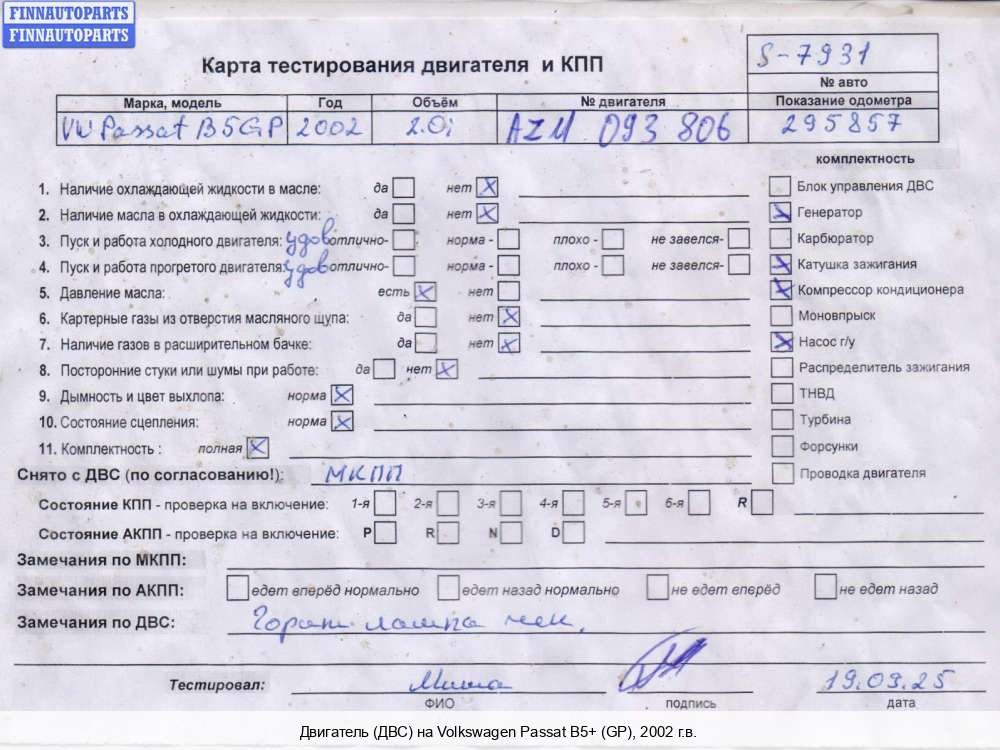 FINNAUTOPARTS
FINNAUTOPARTS
S-7931
Карта тестирования двигателя и КПП
№ авто
Марка, модель Год Объём № двигателя Показание одометра
VW Passat B5GP 2002 2.0i AZM 093 806 295857
комплектность
1. Наличие охлаждающей жидкости в масле: да нет X Блок управления ДВС
2. Наличие масла в охлаждающей жидкости: да нет X Генератор X
3. Пуск и работа холодного двигателя: удов отлично- норма - плохо - не завелся- Карбюратор
4. Пуск и работа прогретого двигателя: удов отлично- норма - плохо - не завелся- Катушка зажигания X
5. Давление масла: есть X нет Компрессор кондиционера X
6. Картерные газы из отверстия масляного щупа: да нет X Моновпрыск
7. Наличие газов в расширительном бачке: да нет X Насос г/у X
8. Посторонние стуки или шумы при работе: да нет X Распределитель зажигания
9. Дымность и цвет выхлопа: норма X ТНВД
10. Состояние сцепления: норма X Турбина
11. Комплектность : полная X Форсунки
Снято с ДВС (по согласованию!): МКПП Проводка двигателя
Состояние КПП - проверка на включение: 1-я 2-я 3-я 4-я 5-я 6-я R
Состояние АКПП - проверка на включение: P R N D
Замечания по МКПП:
Замечания по АКПП: едет вперёд нормально едет назад нормально не едет вперёд не едет назад
Замечания по ДВС: Горит лампа чек.
Тестировал: Миша 19.09.25
ФИО подпись дата
Двигатель (ДВС) на Volkswagen Passat B5+ (GP), 2002 г.в.